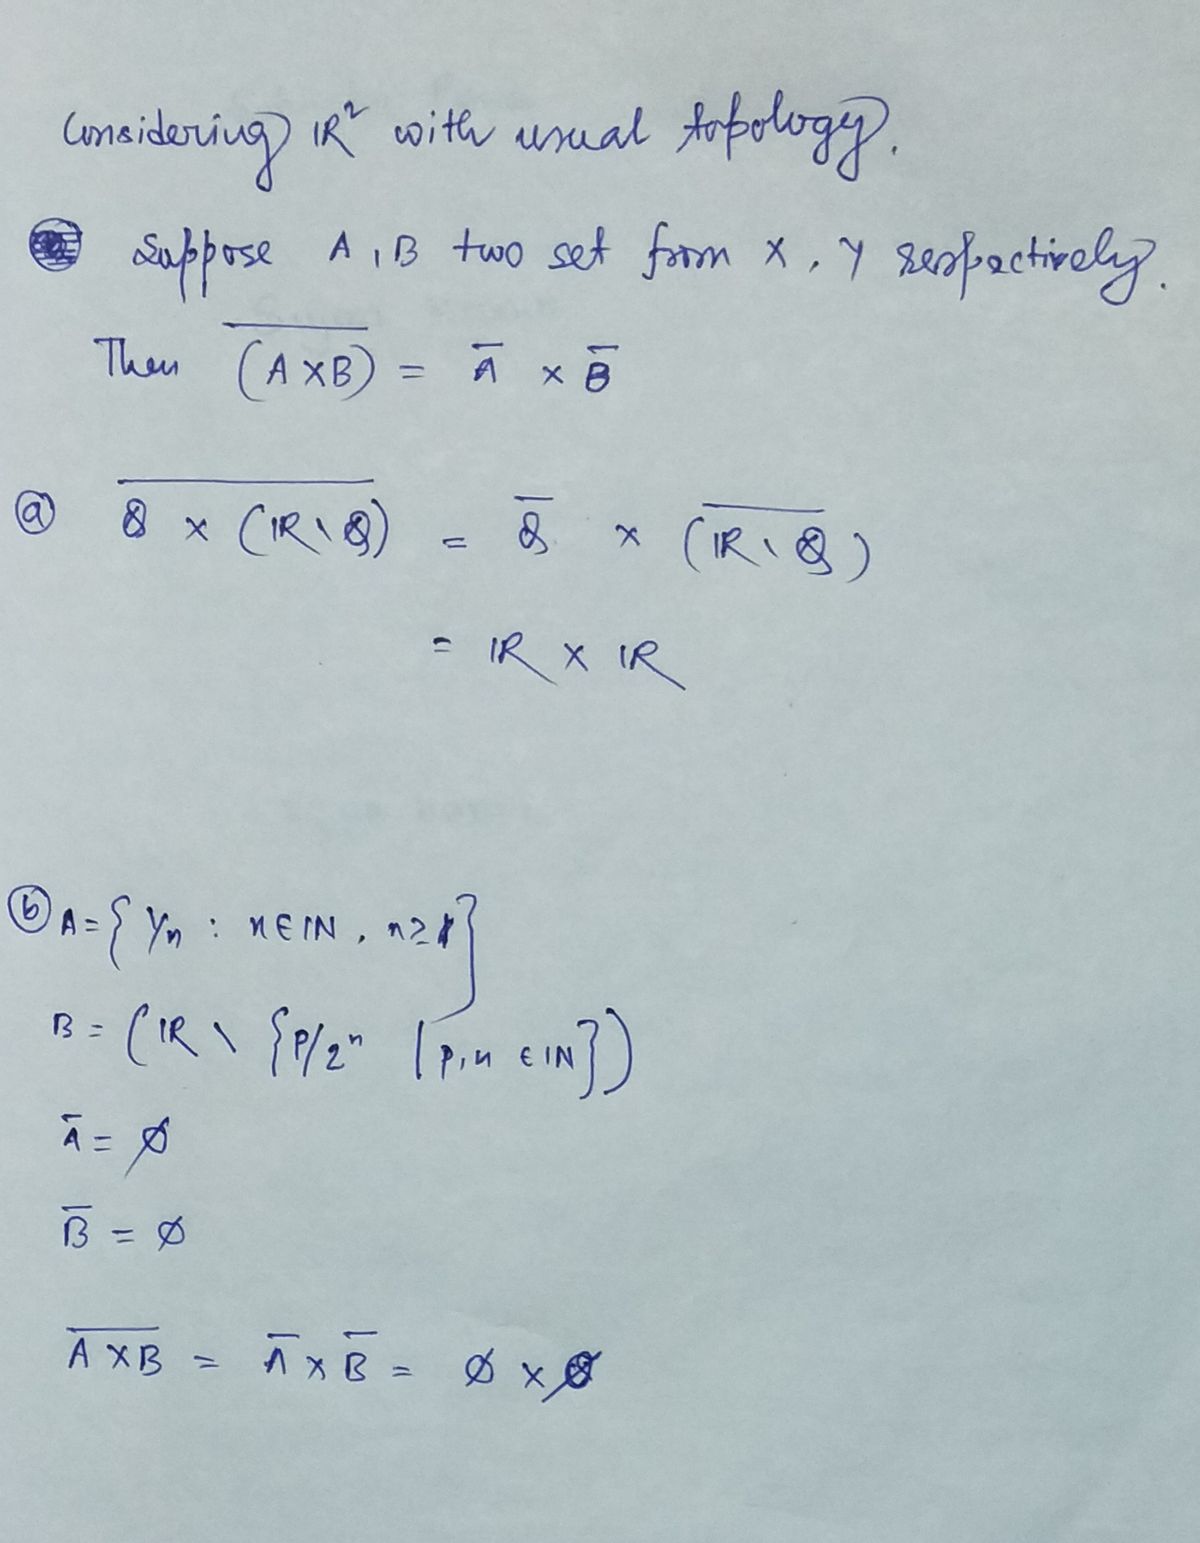 Considering ℝ² with usual topology.
Suppose A, B two set from X, Y respectively.
Then \overline{(A × B)} = \overline{A} × \overline{B}
(a) \overline{ℚ × (ℝ \ ℚ)} = \overline{ℚ} × (\overline{ℝ \ ℚ})
= ℝ × ℝ
(b) A = { 1/n : n ∈ ℕ, n ≥ 1 }
B = (ℝ \ { p/2ⁿ | p, n ∈ ℕ })
\overline{A} = ∅
\overline{B} = ∅
\overline{A × B} = \overline{A} × \overline{B} = ∅ × ∅